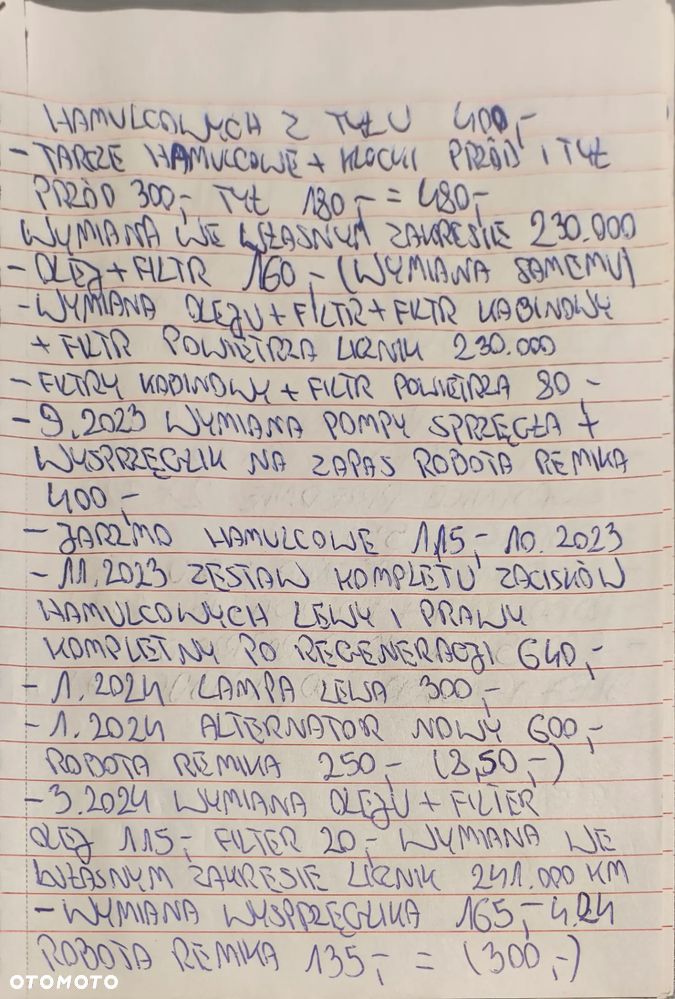 HAMULCOWYCH Z TYŁU 400,-
- TARCZE HAMULCOWE + KLOCKI PRZÓD I TYŁ
PRZÓD 300,- TYŁ 180,- = 480,-
WYMIANA WE WŁASNYM ZAKRESIE 230.000
- OLEJ + FILTR 160,- (WYMIANA SAMEMU)
- WYMIANA OLEJU + FILTR + FILTR KABINOWY
+ FILTR POWIETRZA LICZNIK 230.000
- FILTRY KABINOWY + FILTR POWIETRZA 80,-
- 9.2023 WYMIANA POMPY SPRZĘGŁA +
WYSPRZĘGLIK NA ZAPAS ROBOTA REMIKA
400,-
- JARZMO HAMULCOWE 115,- 10.2023
- 11.2023 ZESTAW KOMPLETU ZACISKÓW
HAMULCOWYCH LEWY I PRAWY
KOMPLETNY PO REGENERACJI 640,-
- 1.2024 LAMPA LEWA 300,-
- 1.2024 ALTERNATOR NOWY 600,-
ROBOTA REMIKA 250,- (8,50,-)
- 3.2024 WYMIANA OLEJU + FILTER
OLEJ 115,- FILTER 20,- WYMIANA WE
WŁASNYM ZAKRESIE LICZNIK 241.000 KM
- WYMIANA WYSPRZĘGLIKA 165,- 4.24
ROBOTA REMIKA 135,- = (300,-)
OTOMOTO